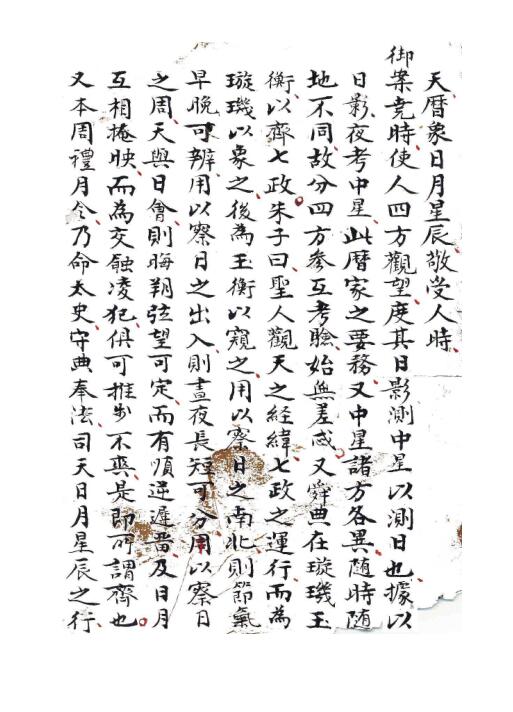 天曆象日月星辰敬受人時
御案堯時使人四方觀望度其日影測中星以測日也據以
日影夜考中星此曆家之要務又中星諸方各異随時随
地不同故分四方參互考驗始無差忒又舜典在璇璣玉
衡以齊七政朱子曰聖人觀天之経緯七政之運行而為
璇璣以象之後為玉衡以窺之用以察日之南北則節氣
早晚可辨用以察日之出入則晝夜長短可分用以察日
之周天與日會則晦朔弦望可定而有順逆遲晋及日月
互相掩映而為交蝕凌犯俱可推步不爽是即所謂齊也
又本周禮月令乃命太史守典奉法司天日月星辰之行